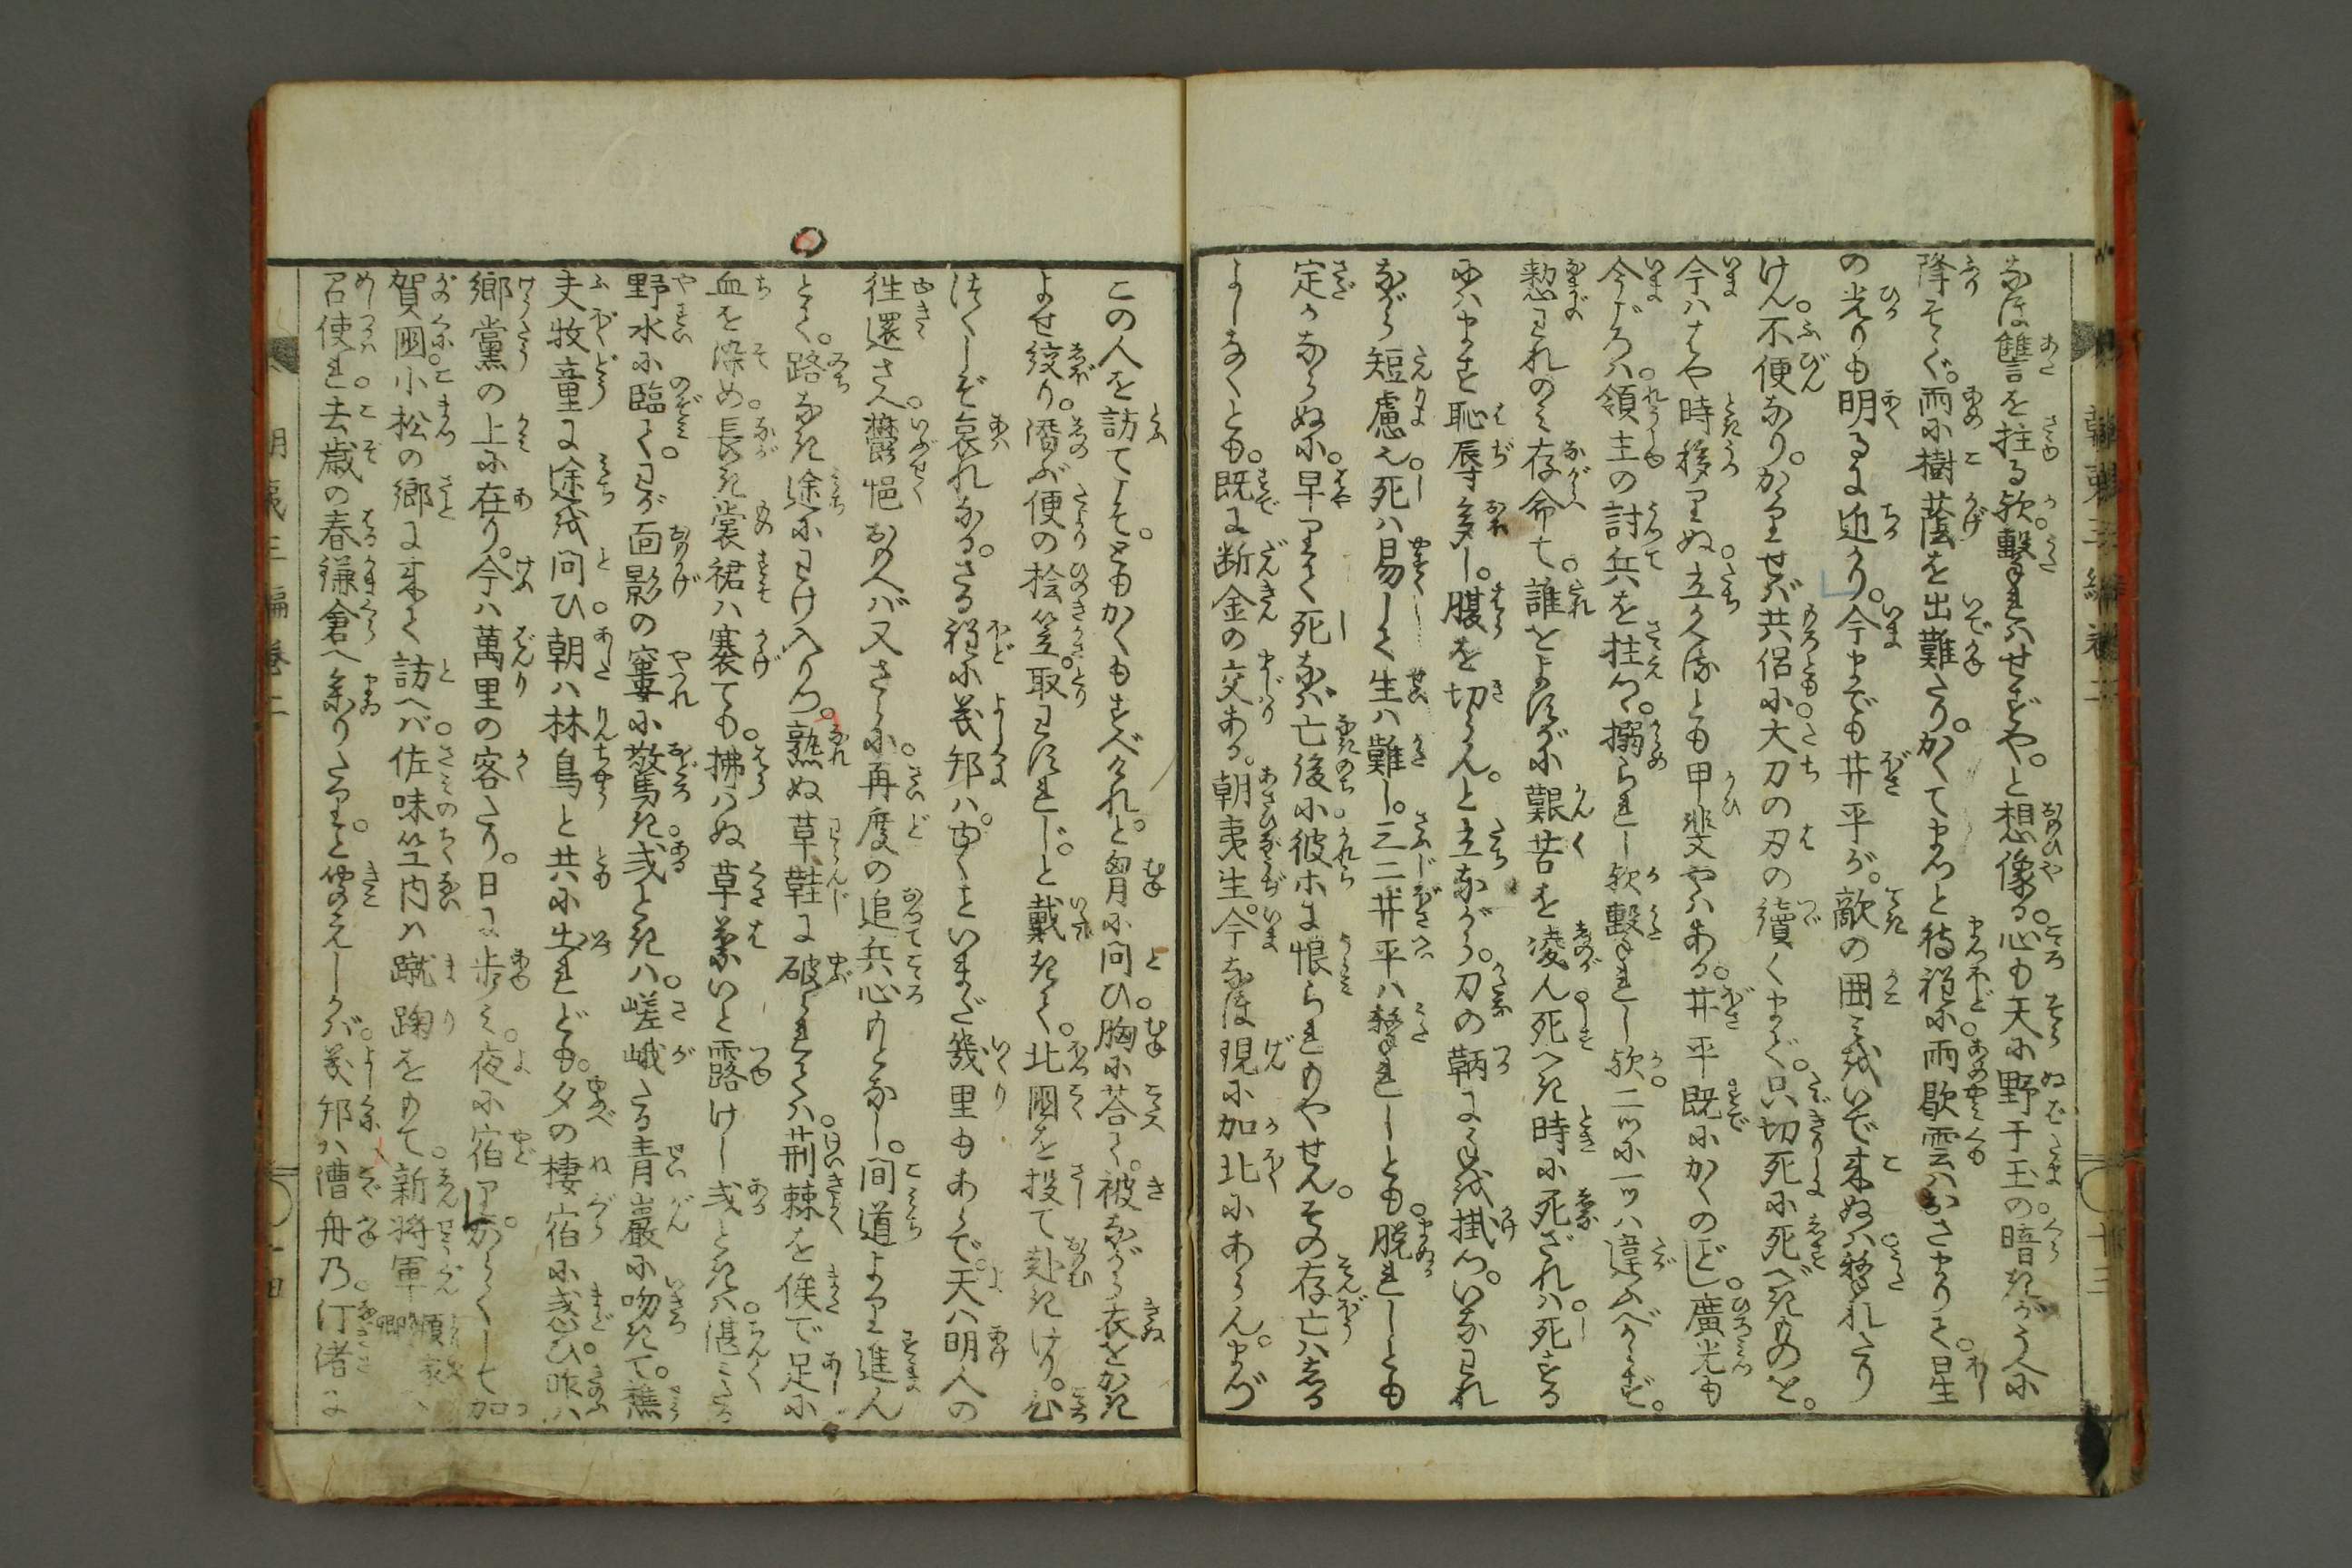 なほ讐を拄る歟。撃れはせずや。と想像る。心も天に野干玉の。暗きがうへに
降そゝぐ。雨に樹蔭を出難たり。かくてまつと待程に。雨歇雲はおさまりて。星
の光りも明るに近かり。今までも井平が。敵の囲を いで来ぬは。撃れたり
けん。不便なり。かゝりせば共侶に。大刀の刃の續くまで。只切死に死べきものを。
今はゝや時移りぬ。立かへるとも甲斐やはある。井平既にかくのごとし。廣光も
今ごろは。領主の討兵を拄つ。搦られし歟撃れし歟。二ッに一ッは違ふべからず。
憖われのみ存命て。誰とよすがに艱苦を凌ん。死べき時に死ざれば。死する
にはます恥辱多し。腹を切らん。と立ながら。刀の鞆に手を掛つ。いなわれ
ながら短慮也。死は易して生は難し。三二井平は撃れしとも。脱れしとも
定かならぬに。早りて死なば亡後に。彼ホに恨られもやせん。その存亡はしる
よしなくとも。既に断金の交ある。朝夷生。今なほ現に加北にあらん。まづ
この人を訪てこそ。ともかくもすべけれ。と胷に問ひ。胸に荅て。被ながら衣をかき
よせ絞り。潛ぶ便の桧笠。取わすれじ。と戴きて。北國を投て赴きけり。心
つくしぞ哀れなる。さる程に義邦は。ゆく〳〵といまだ幾里もあらで。天は明人の
徃還さへ。鬱悒おもへば又さらに。再度の追兵心もとなし。間道より進ん
とて。路なき途にわけ入りつ。熟ぬ草鞋に破られては。荊棘を俟で足に
血を染め。長き裳裙は褰ても。拂はぬ草葉いと露けし。或ときは。湛こたる
野水に臨て。わが面影の窶に驚き。或ときは。嵯峨たる青巖に吻きて。樵
夫牧童に途を問ひ。朝は林鳥と共に出れども。夕の棲宿に惑ひ。昨は
郷黨の上に在り。今は萬里の客たり。日に歩み。夜に宿りて。からくして加
賀國。小松の郷に来て訪へば。佐味竺内は蹴鞠をもて。新将軍 頼家卿 へ
召使れ。去歳の春鎌倉へ参りたりと聞えしかば。義邦は漕舟乃汀渚に
朝夷三編卷二
十三